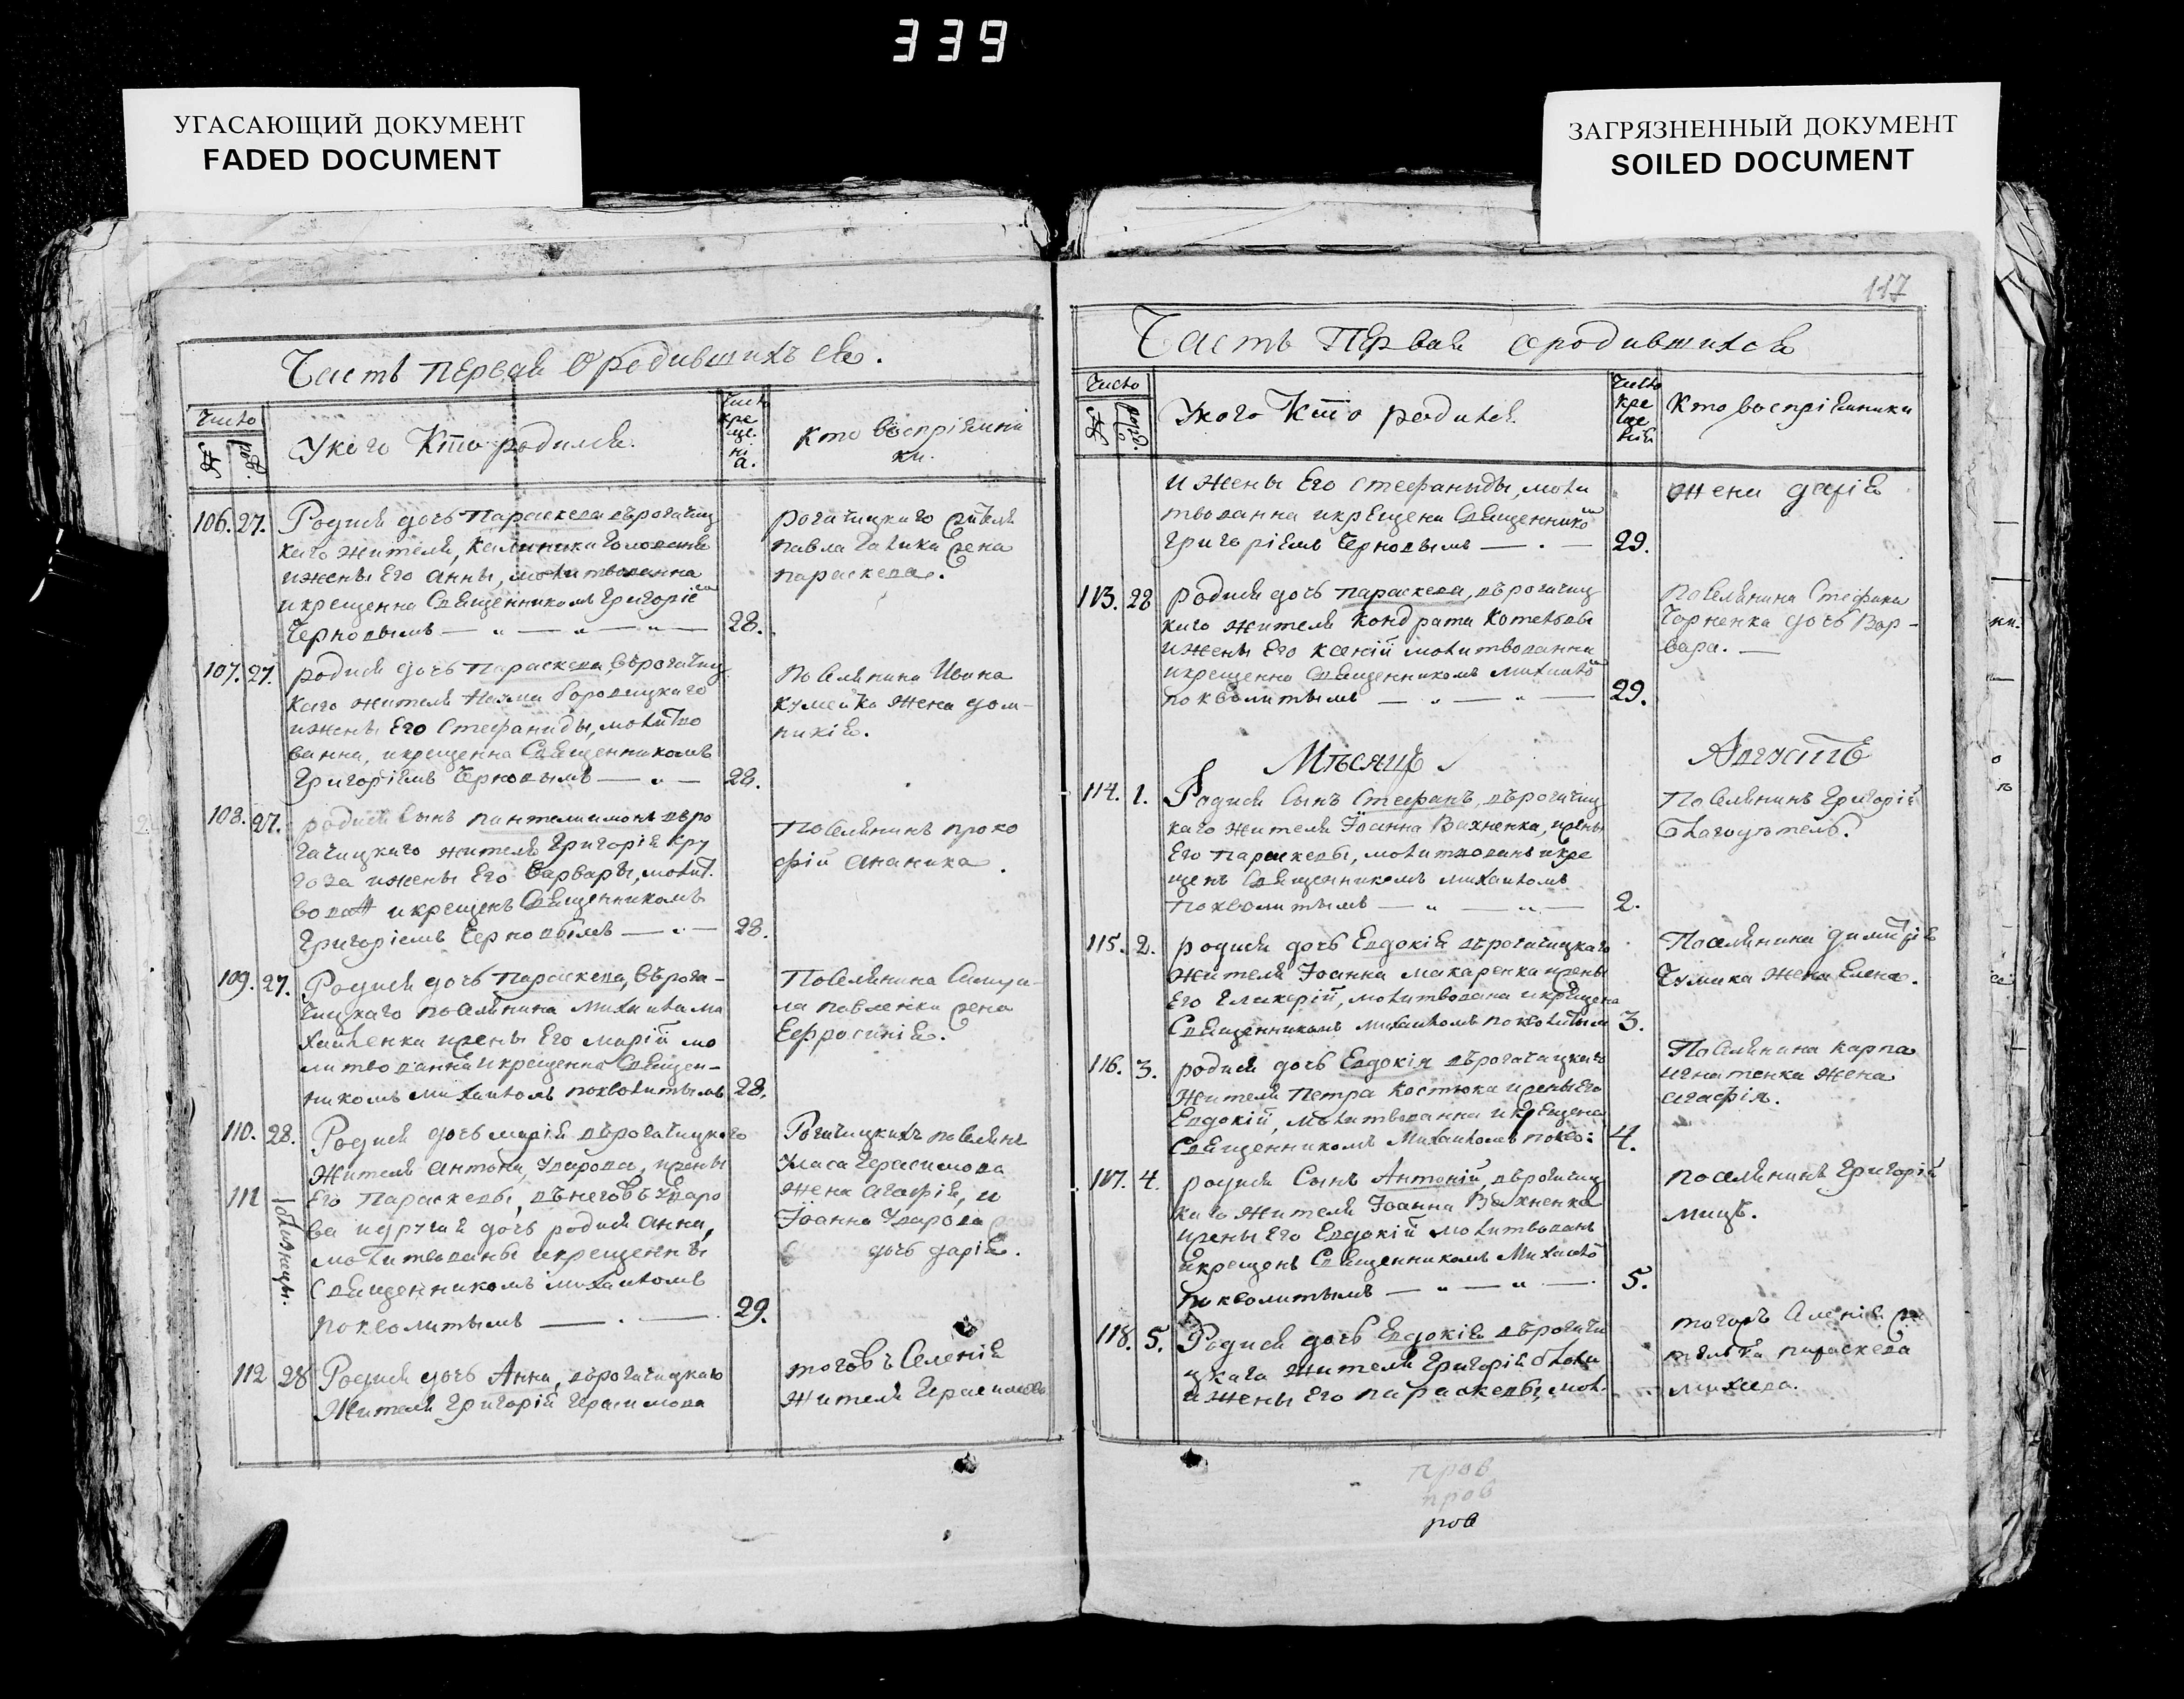 339
УГАСАЮЩИЙ ДОКУМЕНТ
FADED DOCUMENT
ЗАГРЯЗНЕННЫЙ ДОКУМЕНТ
SOILED DOCUMENT
Часть первая о родившихъся.
Число
№ рож.
У кого кто родился.
Число креще нiа.
кто воспріемни
ки.
106. 27. Родися дочь Параскева въ рогачиц
каго жителя, Калиника
и жены его Анны, молитвованна
и крещенна Священникомъ Григоріем
Черновымъ 28.
рогачицкаго жителя
павла Галика жена
параскева.
107. 27. родися дочь Параскева, въ рогачиц
каго жителя Наума Бородицкаго
и жены его Стефаниды, молитво
ванна, и крещенна Священникомъ
Григоріемъ Черновымъ 28.
Поселянина Ивана
кумейка жена дом-
никія.
108. 27. родися сынъ пантелимонъ въ ро
гачицкаго жителя Григорія Кру
гоза и жены его Варвары, молит.
вован и крещенъ Священникомъ
Григоріемъ Черновымъ 28.
Поселянинъ проко
фій ананика.
109. 27. Родися дочь Параскева, въ рога-
чицкаго поселянина Михаила ми
хайленка и жены его Маріи мо
литвованна и крещенна Священ-
никомъ Михаиломъ поквалитымъ 28.
Поселянина Самуи-
ла павленка жена
Ефросинія.
110. 28. Родися дочь марія въ рогачицкаго
жителя Антона, Уварова, и жены
111 близнецы. его Параскевы, въ негожъ Уваро
ва и другая дочь родися Анна,
молитвованы и крещенны
Священникомъ Михаиломъ
поквалитымъ 29.
Рогачицкихъ поселянъ
Уласа Герасимова
жена Агафія, и
Іоанна Уварова
дочь дарія.
112 28 Родися дочь Анна, въ рогачицкаго
жителя Григорія Герасимова
тогожъ Селенія
жителя Герасимова
117
Часть Первая о родившихся
Число
№ рож.
У кого кто родился
Число кре ще нія
Кто воспріемники
и жены его Стефаниды, моли
твованна и крещена Священником
Григоріемъ Черновымъ 29.
жена дарія
113. 28 родися дочь параскева, въ рогачиц
каго жителя Кондрата
и жены его Ксеніи молитвованна
и крещенна Священникомъ михаилом
поквалитымъ 29.
Поселянина Стефана
Чорненка дочь Вар-
вара.
Мѣсяцъ
Августъ
114. 1. Родися сынъ Стефанъ, въ рогачиц
каго жителя Іоанна Вахненка, и жены
его параскевы, молитвованъ и кре
щенъ Священникомъ михаиломъ
поквалитымъ 2.
Поселянинъ Григорій
благодѣтель.
115. 2. родися дочь Евдокія въ рогачицкаго
жителя Іоанна макаренка и жены
его Гликеріи, молитвована и крещена
Священникомъ михаиломъ поквалитым 3.
Поселянина димитрія
Чумака жена Елена.
116. 3. родися дочь Евдокія въ рогачицкаго
жителя Петра Костюка и жены его
Евдокіи, молитвованна и крещена
Священникомъ Михаиломъ поква: 4.
Поселянина карпа
игнатенка жена
агафія.
117. 4. родися Сынъ Антоній, въ рогачиц
каго жителя Іоанна Вахненка
и жены его Евдокіи молитвованъ
и крещенъ Священникомъ Михаило
поквалитымъ 5.
поселянинъ Григорій
мицъ.
118. 5. Родися дочь Евдокія въ рогачи
цкаго жителя Григорія
и жены его параскевы, мол.
тогожъ Селенія жи
телька параскева
михеева.
пров
пров
ров